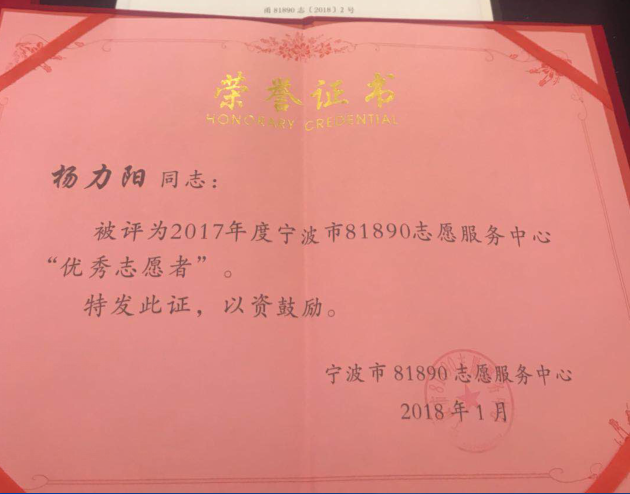 甬81890志〔2018〕2号
荣誉证书
HONORARY CREDENTIAL
杨力阳 同志：
被评为2017年度宁波市81890志愿服务中心
“优秀志愿者”。
特发此证，以资鼓励。
宁波市 81890 志愿服务中心
2018 年 1 月